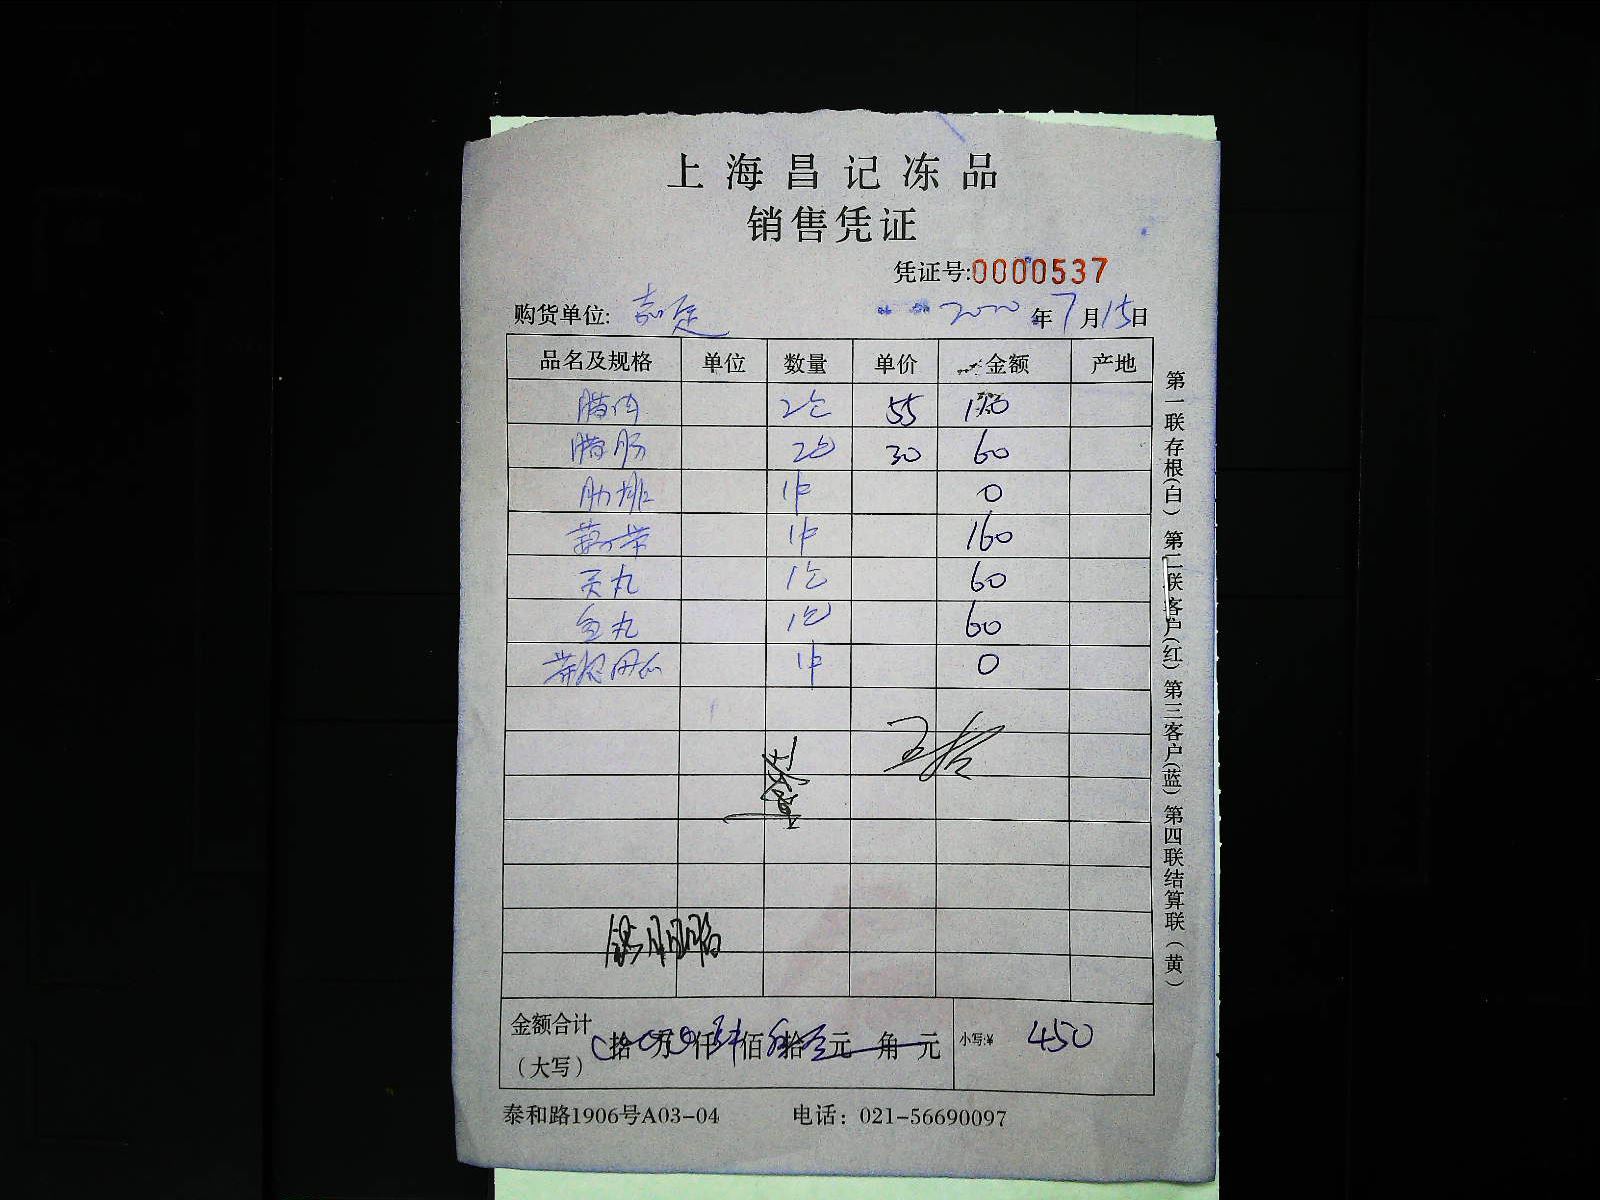 上海昌记冻品
销售凭证
凭证号:0000537
购货单位: 嘉定 2020年7月15日
品名及规格 单位 数量 单价 金额 产地
腊肉 2包 55 110
腊肠 2包 30 60
肋排 1件 0
1件 160
贡丸 1包 60
鱼丸 1包 60
1件 0
金额合计 拾 万 仟 肆佰 伍拾 元 角 元 小写:¥ 450
(大写)
泰和路1906号A03-04 电话: 021-56690097
第一联存根(白) 第二联客户(红) 第三客户(蓝) 第四联结算联(黄)